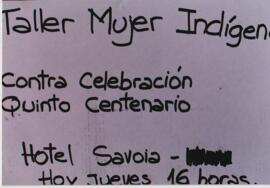 Taller Mujer Indígena
Contra Celebración
Quinto Centenario
Hotel Savoia -
Hoy Jueves 16 horas.